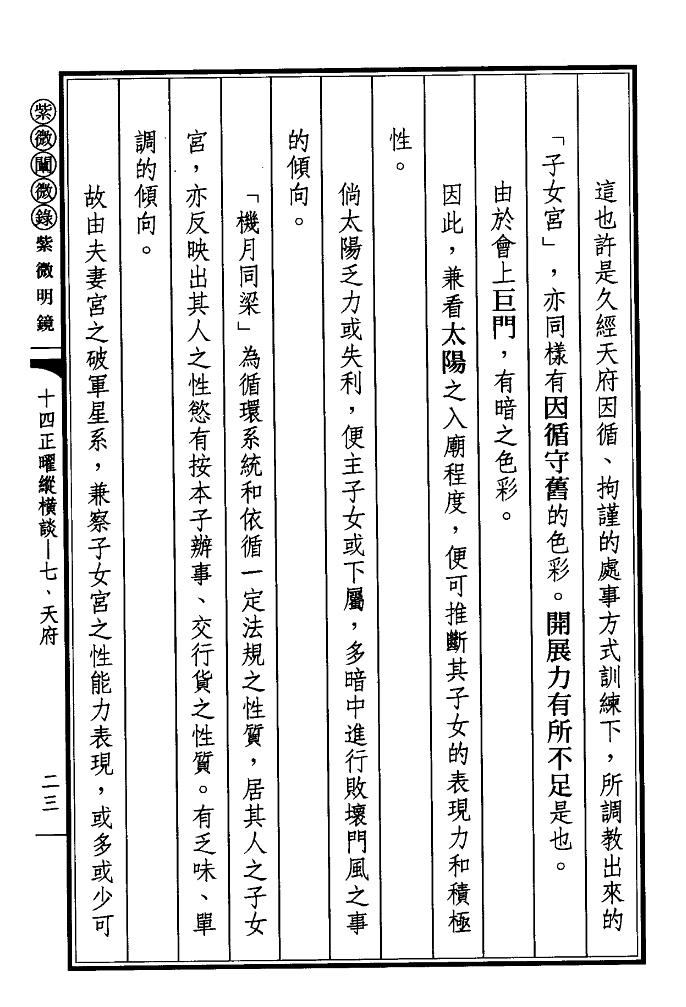 這也許是久經天府因循、拘謹的處事方式訓練下，所調教出來的
「子女宮」，亦同樣有因循守舊的色彩。開展力有所不足是也。
由於會上巨門，有暗之色彩。
因此，兼看太陽之入廟程度，便可推斷其子女的表現力和積極
性。
倘太陽乏力或失利，便主子女或下屬，多暗中進行敗壞門風之事
的傾向。
「機月同梁」為循環系統和依循一定法規之性質，居其人之子女
宮，亦反映出其人之性慾有按本子辦事、交行貨之性質。有乏味、單
調的傾向。
故由夫妻宮之破軍星系，兼察子女宮之性能力表現，或多或少可
紫微闡微錄 紫微明鏡
十四正曜縱橫談—七、天府
二三